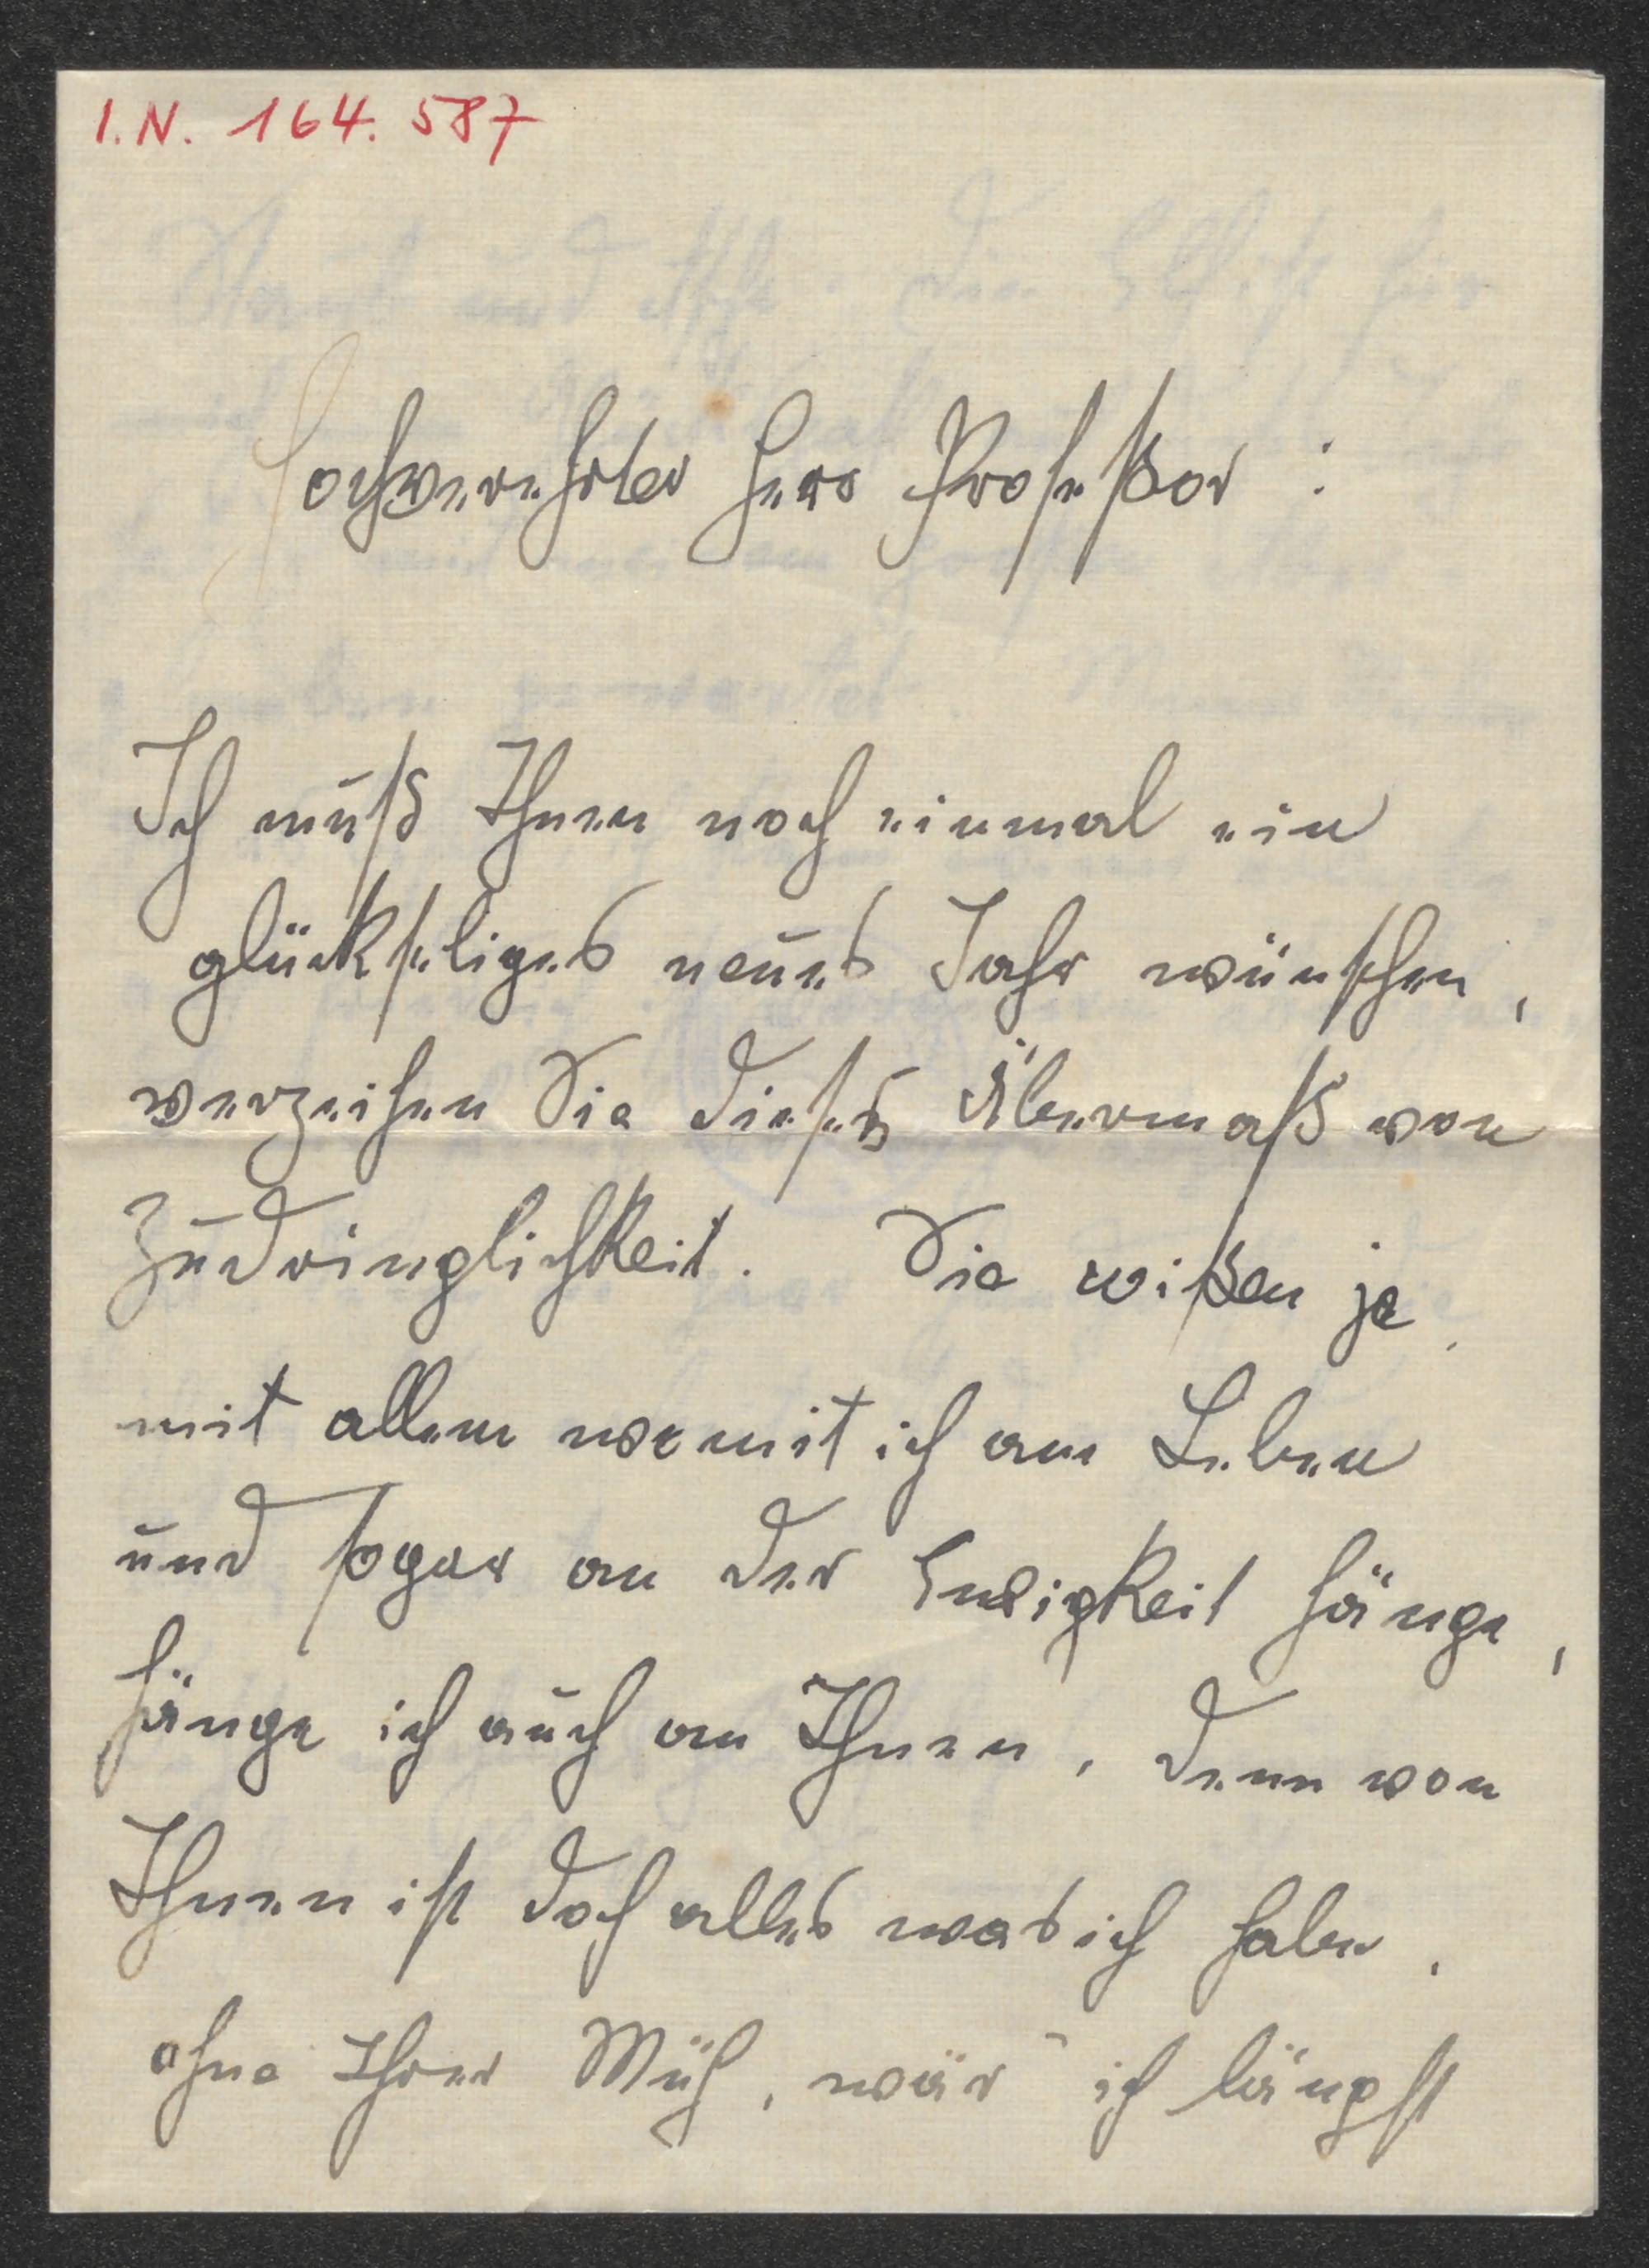 I.N. 164.587
Hochverehrter Herr Profeßor :
Ich muß Ihnen noch einmal ein
glückseliges neues Jahr wünschen,
verzeihen Sie dieses Übermaß von
Zudringlichkeit. Sie wißen ja,
mit allem womit ich am Leben
und sogar an der Ewigkeit hänge,
hänge ich auch an Ihnen, denn von
Ihnen ist doch alles was ich habe,
ohne Ihrer Müh, wär' ich längst